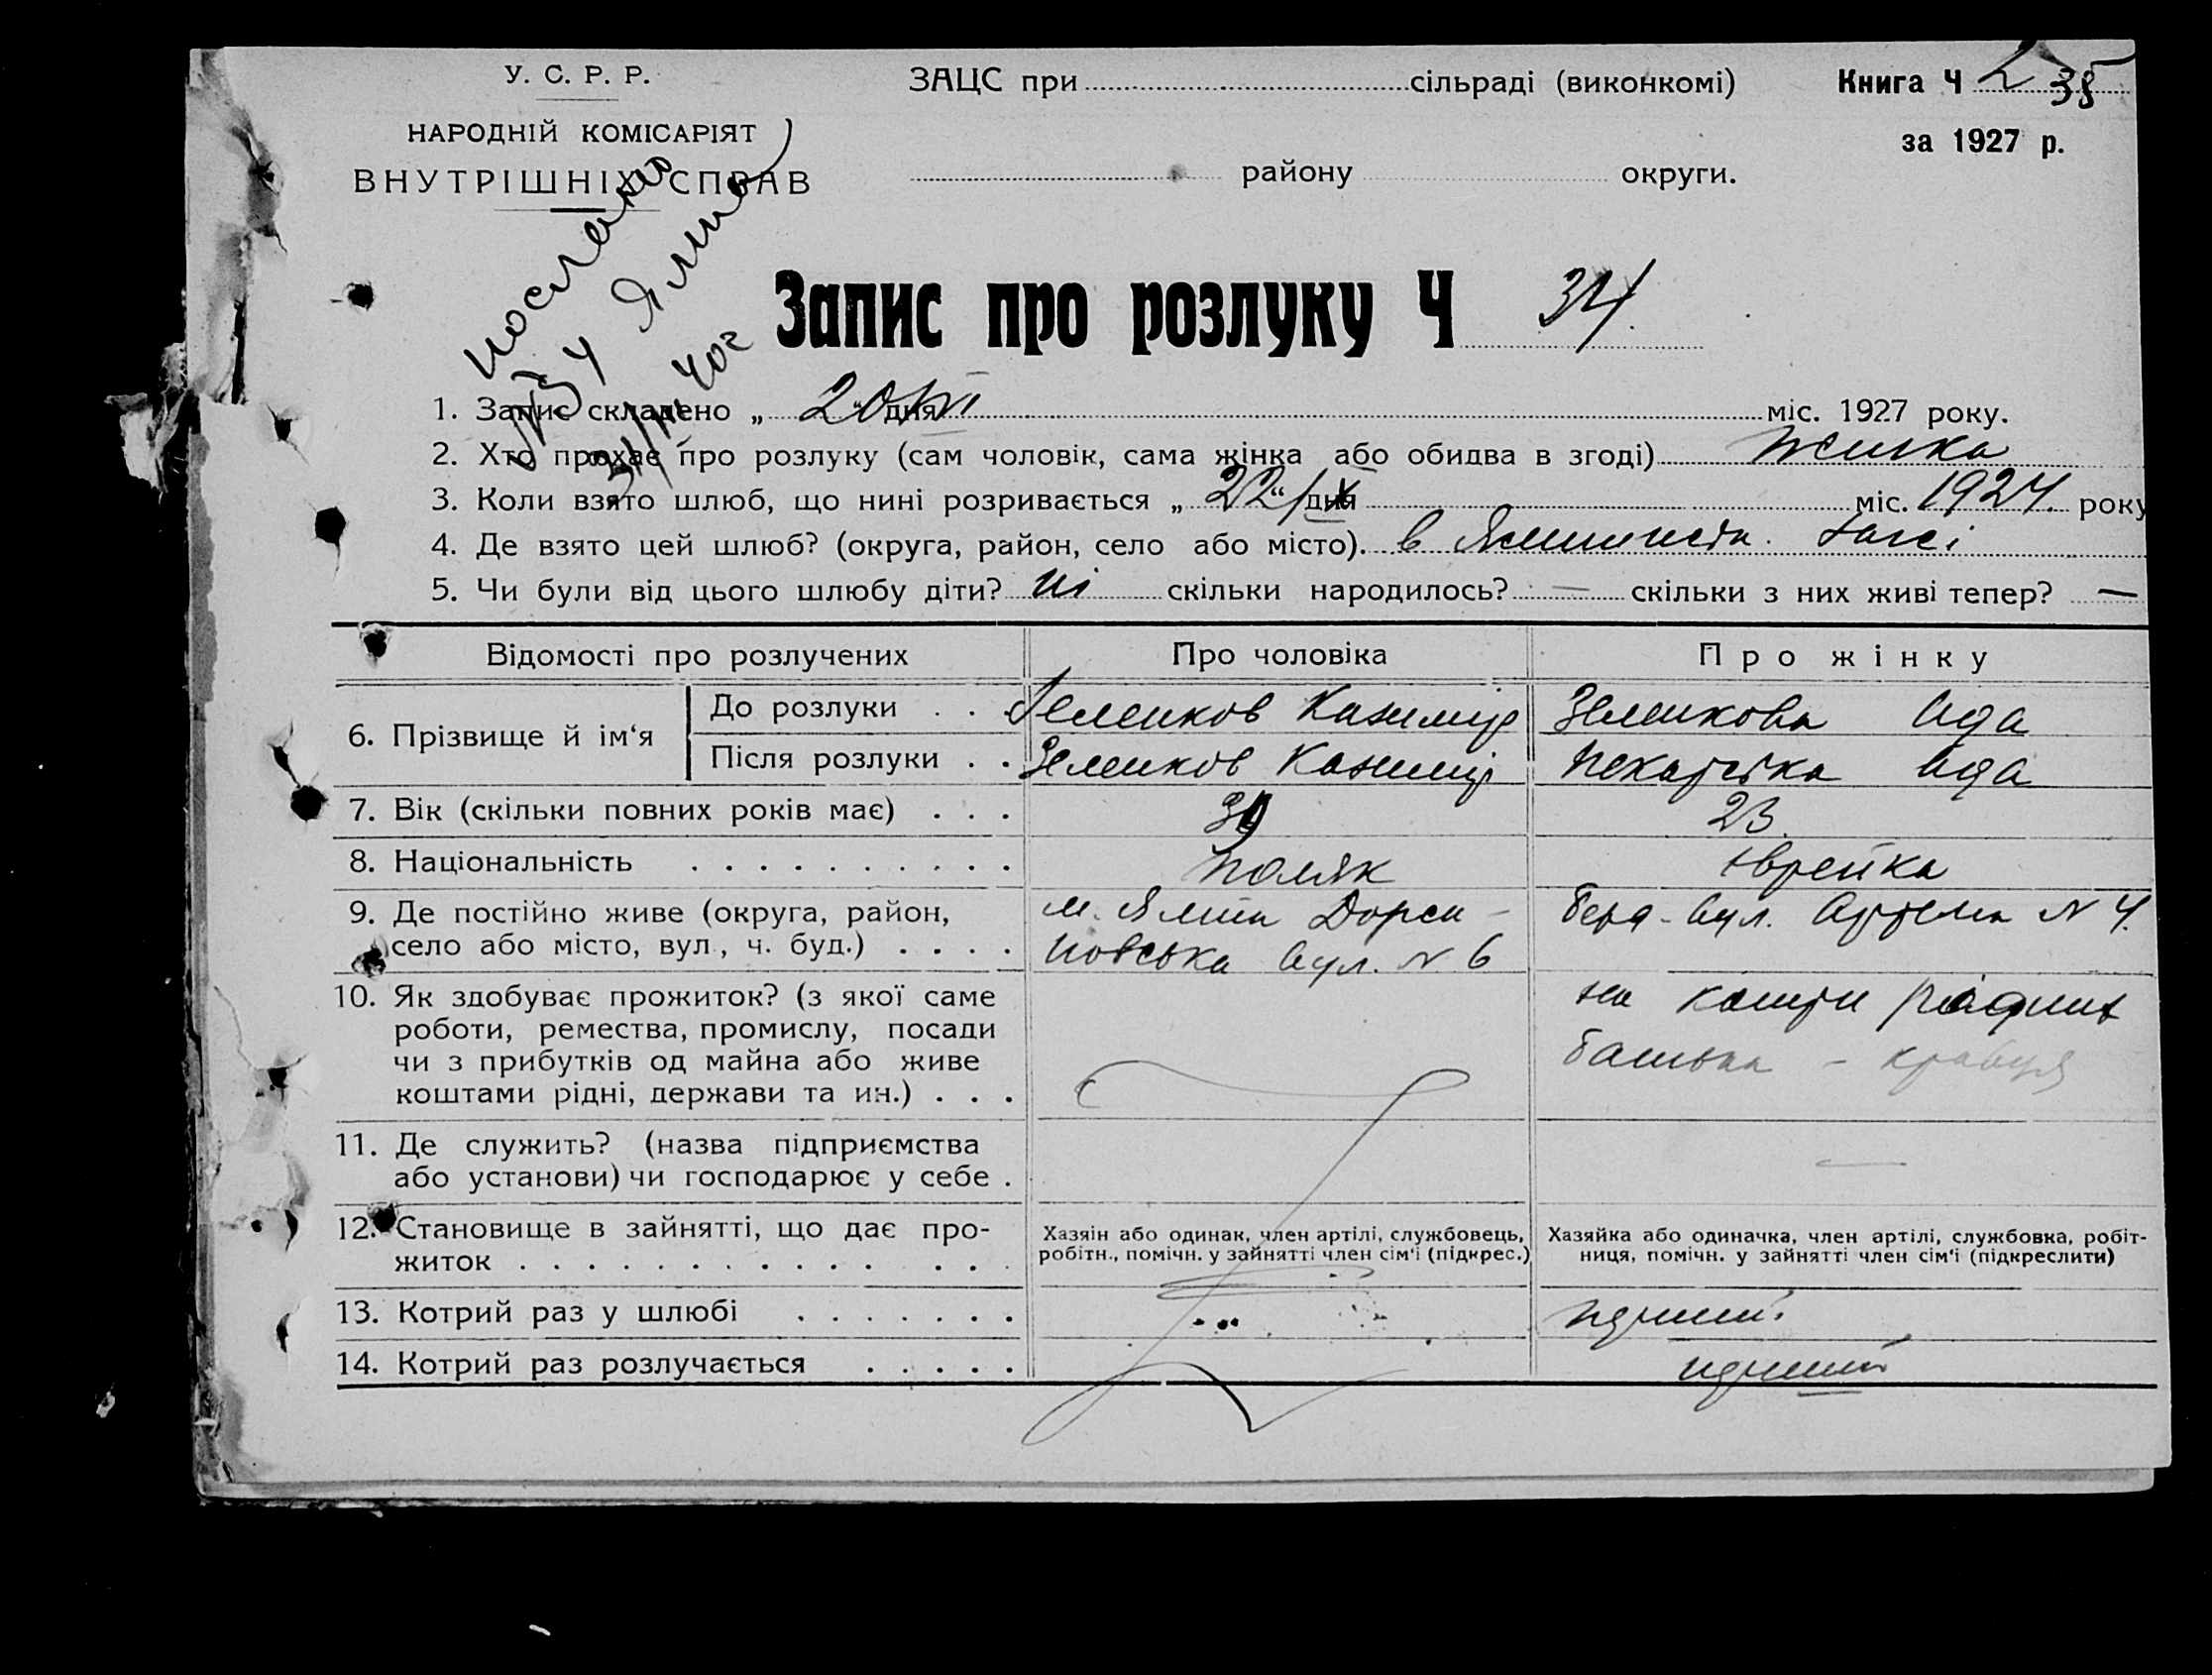 У. С. Р. Р.
НАРОДНІЙ КОМІСАРІЯТ
ВНУТРІШНІХ СПРАВ
ЗАЦС при сільраді (виконкомі)
району округи.
Книга Ч 2 38
за 1927 р.
послано
Запис про розлуку Ч 34.
1. Запис складено „ 20 “ дня VI міс. 1927 року.
2. Хто прохає про розлуку (сам чоловік, сама жінка або обидва в згоді) жінка
3. Коли взято шлюб, що нині розривається „ 22 “ дня міс. 1924. року
4. Де взято цей шлюб? (округа, район, село або місто). в загсі
5. Чи були від цього шлюбу діти? ні скільки народилось? — скільки з них живі тепер? —
Відомості про розлучених Про чоловіка Про жінку
6. Прізвище й ім‘я
До розлуки . . Зеленков Казимір Зеленкова Ида
Після розлуки . . Зеленков Казимір Ида
7. Вік (скільки повних років має) . . . 23.
8. Національність . . . . . . . . . . поляк єврейка
9. Де постійно живе (округа, район, м. Ялта вул. № 4.
село або місто, вул., ч. буд.) . . . . новська вул. № 6
10. Як здобуває прожиток? (з якої саме на кошти рідних
роботи, ремества, промислу, посади
чи з прибутків од майна або живе батька – кравця
коштами рідні, держави та ин.) . . .
11. Де служить? (назва підприємства —
або установи) чи господарює у себе .
12. Становище в зайнятті, що дає про-
житок . . . . . . . . . . . . . .
Хазяін або одинак, член артілі, службовець,
робітн., помічн. у зайнятті член сім‘і (підкрес.)
Хазяйка або одиначка, член артілі, службовка, робіт-
ниця, помічн. у зайнятті член сім‘і (підкреслити)
13. Котрий раз у шлюбі . . . . . . . перший
14. Котрий раз розлучається . . . . . перший